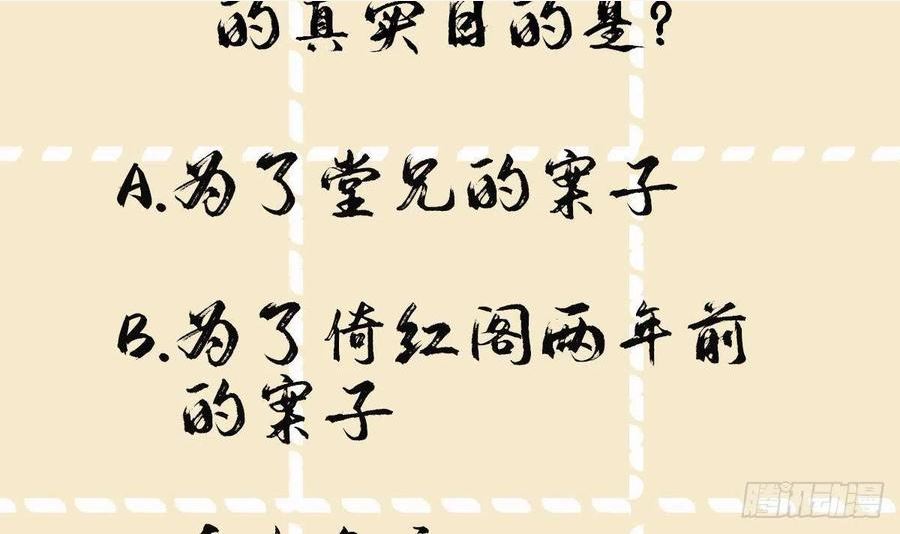 的真实目的是?
A.为了堂兄的案子
B.为了倚红阁两年前
的案子
腾讯动漫